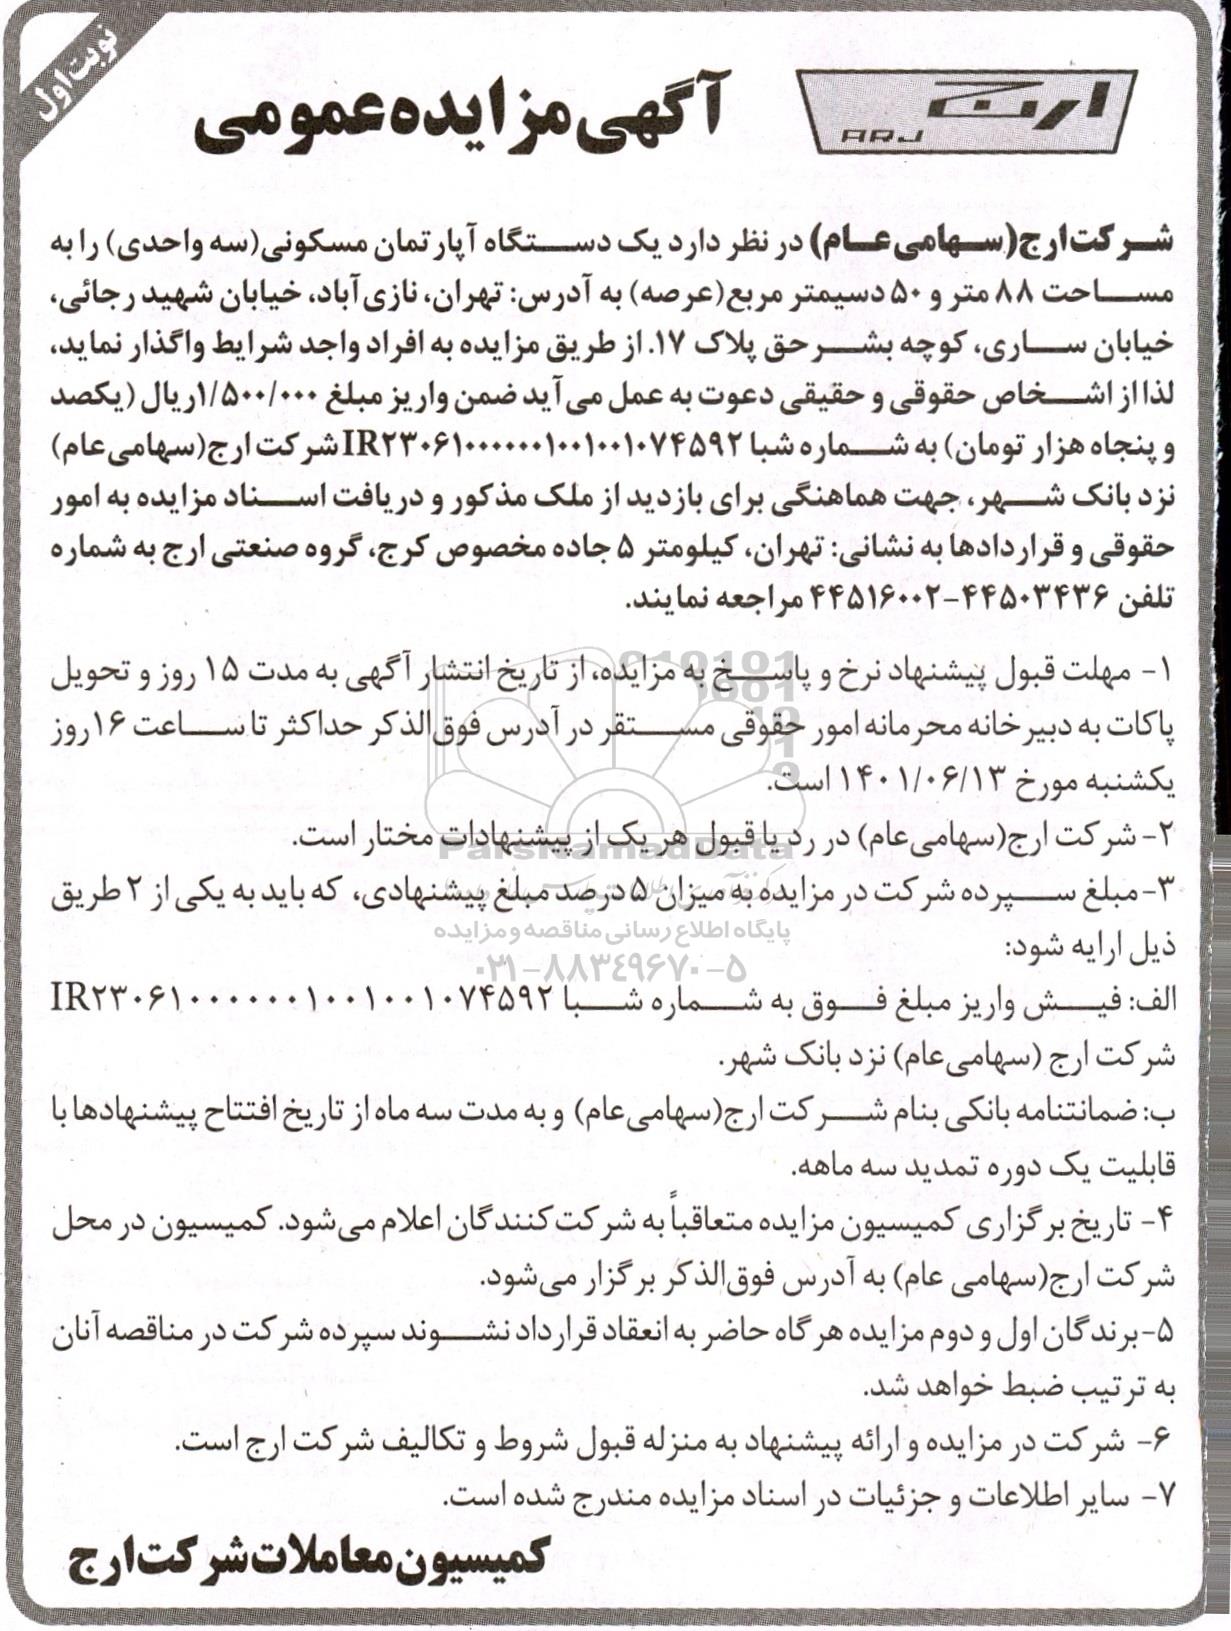 نوبت اول
ارج
ARJ
آگهی مزایده عمومی
شرکت ارج(سهامی عام) در نظر دارد یک دستگاه آپارتمان مسکونی(سه واحدی) را به
مساحت ۸۸ متر و ۵۰ دسیمتر مربع(عرصه) به آدرس: تهران، نازی آباد، خیابان شهید رجائی،
خیابان ساری، کوچه بشر حق پلاک ۱۷. از طریق مزایده به افراد واجد شرایط واگذار نماید،
لذا از اشخاص حقوقی و حقیقی دعوت به عمل می آید ضمن واریز مبلغ ۱/۵۰۰/۰۰۰ریال (یکصد
و پنجاه هزار تومان) به شماره شبا IR۲۳۰۶۱۰۰۰۰۰۰۰۱۰۰۱۰۰۱۰۷۴۵۹۲ شرکت ارج(سهامی عام)
نزد بانک شهر، جهت هماهنگی برای بازدید از ملک مذکور و دریافت اسناد مزایده به امور
حقوقی و قراردادها به نشانی: تهران، کیلومتر ۵ جاده مخصوص کرج، گروه صنعتی ارج به شماره
تلفن ۴۴۵۰۳۴۳۶-۴۴۵۱۶۰۰۲ مراجعه نمایند.
۱- مهلت قبول پیشنهاد نرخ و پاسخ به مزایده، از تاریخ انتشار آگهی به مدت ۱۵ روز و تحویل
پاکات به دبیرخانه محرمانه امور حقوقی مستقر در آدرس فوق‌الذکر حداکثر تا ساعت ۱۶ روز
یکشنبه مورخ ۱۴۰۱/۰۶/۱۳ است.
۲- شرکت ارج(سهامی‌عام) در رد یا قبول هر یک از پیشنهادات مختار است.
ParsNamadData
۳- مبلغ سپرده شرکت در مزایده به میزان ۵ درصد مبلغ پیشنهادی، که باید به یکی از ۲ طریق
پایگاه اطلاع رسانی مناقصه و مزایده
ذیل ارایه شود:
۰۲۱-۸۸۳۴۹۶۷۰-۵
الف: فیش واریز مبلغ فوق به شماره شبا IR۲۳۰۶۱۰۰۰۰۰۰۰۱۰۰۱۰۰۱۰۷۴۵۹۲
شرکت ارج (سهامی‌عام) نزد بانک شهر.
ب: ضمانتنامه بانکی بنام شرکت ارج(سهامی‌عام) و به مدت سه ماه از تاریخ افتتاح پیشنهادها با
قابلیت یک دوره تمدید سه ماهه.
۴- تاریخ برگزاری کمیسیون مزایده متعاقباً به شرکت‌کنندگان اعلام می‌شود. کمیسیون در محل
شرکت ارج(سهامی عام) به آدرس فوق‌الذکر برگزار می‌شود.
۵- برندگان اول و دوم مزایده هرگاه حاضر به انعقاد قرارداد نشوند سپرده شرکت در مناقصه آنان
به ترتیب ضبط خواهد شد.
۶- شرکت در مزایده و ارائه پیشنهاد به منزله قبول شروط و تکالیف شرکت ارج است.
۷- سایر اطلاعات و جزئیات در اسناد مزایده مندرج شده است.
کمیسیون معاملات شرکت ارج